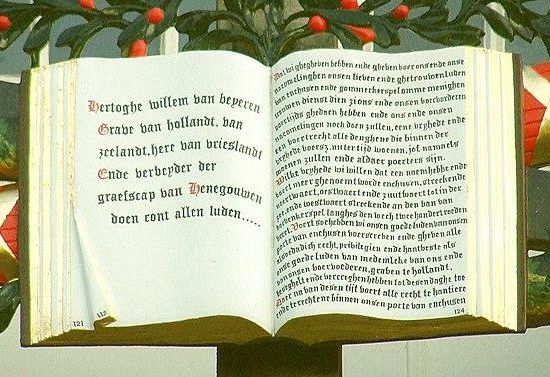 Hertoghe willem van beyeren
Grave van hollandt, van
zeelandt, here van vrieslandt
Ende verbeyder der
graefscap van Henegouwen
doen cont allen luden.....
121
Dat wi ghegheven hebben ende gheven voer ons ende onse
nacomelinghen onsen lieven ende ghetrouwen luden
van enchusen ende gommerkerspel omme menighen
trouwen dienst dien zi ons ende onsen voervorderen
voertijds ghedaen hebben ende ons ende onsen
nacomelingen noch doen zullen, eene vryhede ende
een voerrecht alle denghene die binnen der
vryhede voersz. uutertijd woenen, jof namaels
woenen zullen ende aldaer poerters sijn.
Welke vryhede wi willen dat een naem hebbe ende
voert meer ghenoemt worde enchusen, streckende
ende westwaert streckende an den ban van
langhes den wech twee hondert roeden
Voert soe hebben wi onsen goede luden van onser
poerte van enchusen voerscreven ende gheven alle
recht, privilegien ende hantveste als
onse goede luden van medemleke van ons ende
van onsen voervorderen, graven te hollant,
beseghelt ende vercreghen hebben tot desen daghe toe
Daer na van desen tijt voert alle recht te hantiere
ende te rechtene binnen onsen poerte van enchusen
124